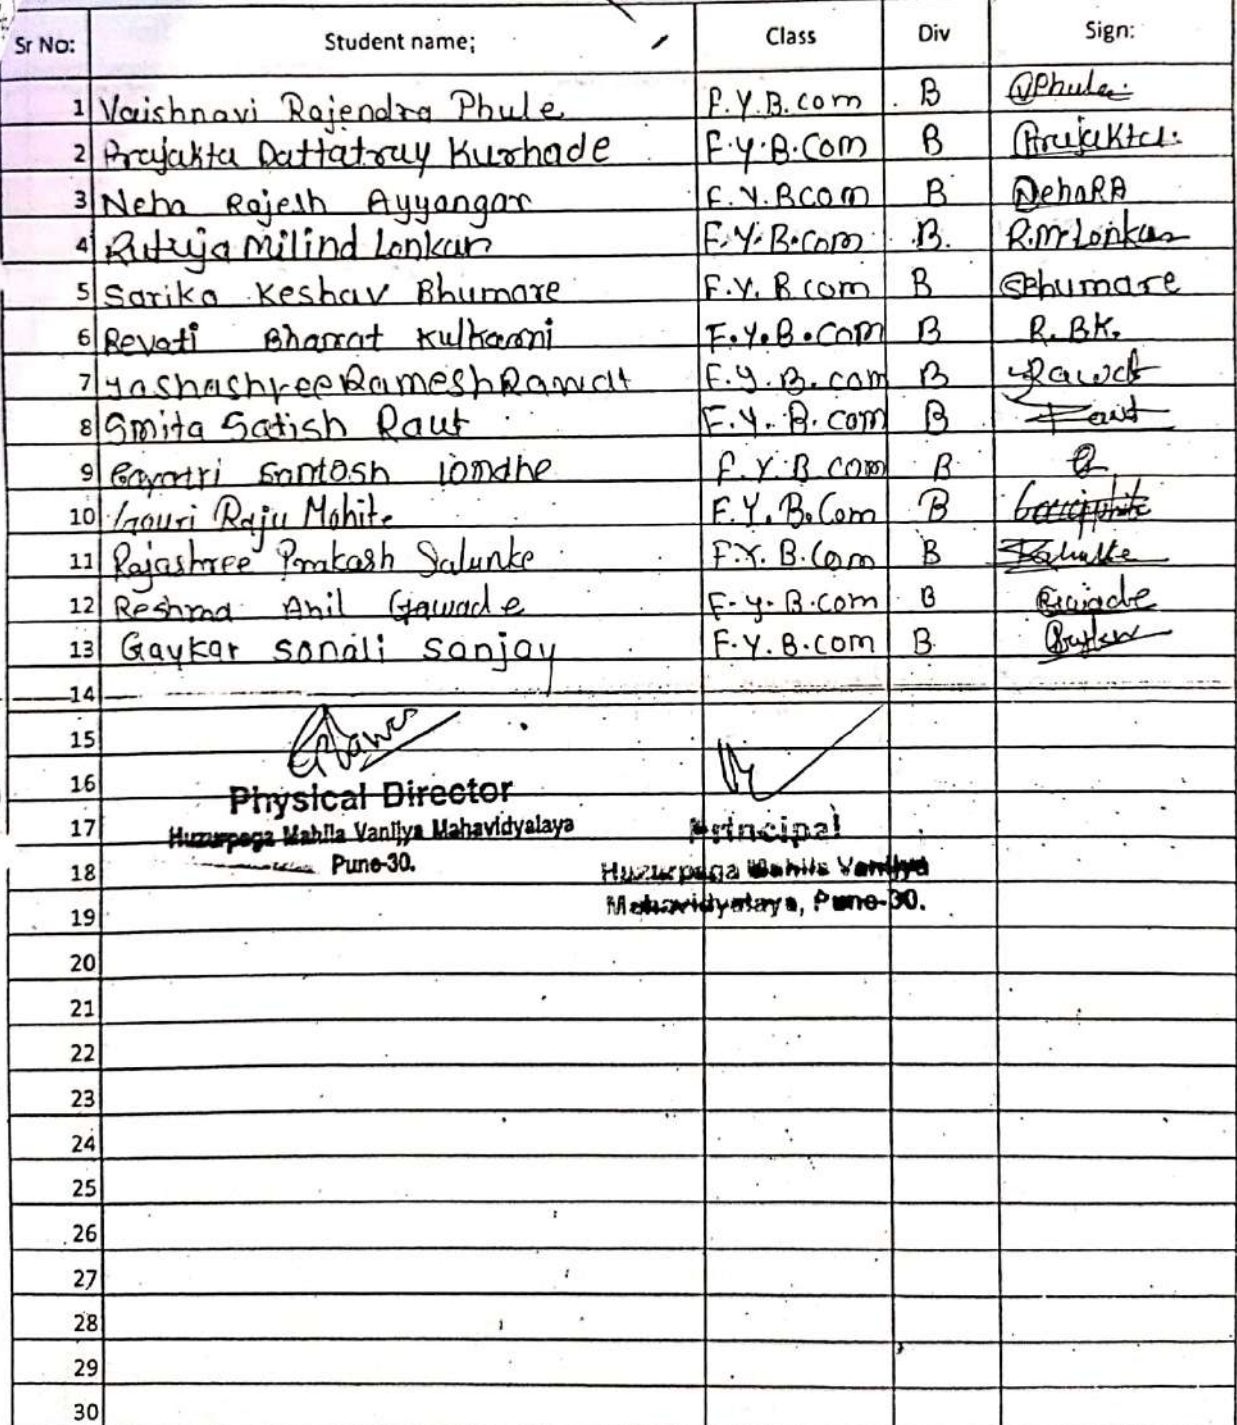 Sr No: Student name; Class Div Sign:
1 Vaishnavi Rajendra Phule F.Y.B.com B VPhule
2 Prajakta Dattatray Kurhade F.Y.B.Com B Prajakta
3 Neha Rajesh Ayyangar F.Y.Bcom B NehaRA
4 Rutuja Milind Lonkar F.Y.B.com B. R.M Lonkar
5 Sarika Keshav Bhumare F.Y.B com B SBhumare
6 Revati Bharat Kulkarni F.Y.B.com B R.BK.
7 Yashashree Ramesh Rawat F.Y.B.com B Rawat
8 Smita Satish Raut F.Y.B.com B Raut
9 Gayatri Santosh londhe F.Y.B com B
10 Gauri Raju Mohite F.Y.B.Com B
11 Rajashree Prakash Salunke F.Y.B.Com B
12 Reshma Anil Gawade F.y.B.com B Gawade
13 Gaykar sonali sanjay F.Y.B.com B
14
15
16 Physical Director
17 Huzurpaga Mahila Vanijya Mahavidyalaya Principal
18 Pune-30. Huzurpaga Mahila Vanijya
19 Mahavidyalaya, Pune-30.
20
21
22
23
24
25
26
27
28
29
30